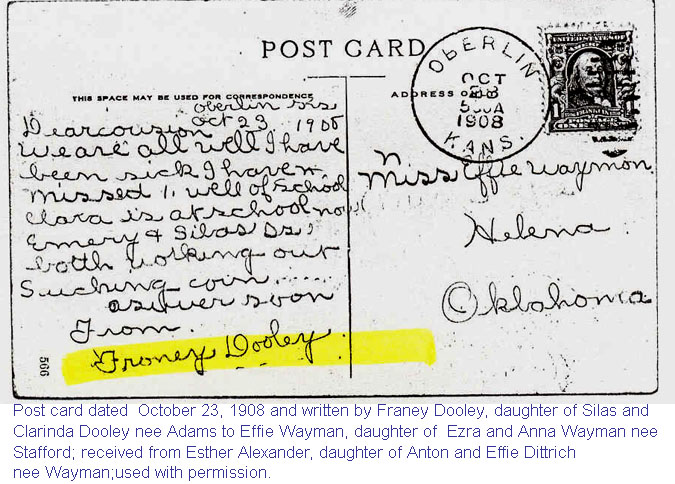 POST CARD
THIS SPACE MAY BE USED FOR CORRESPONDENCE
ADDRESS ONLY
OBERLIN
OCT
23
1908
KANS.
UNITED STATES
FRANKLIN
POSTAGE
1 ONE CENT 1
oberlin
Oct 23 1908
Dear cousion
we are all well I have
been sick I haven
missed 1 well of school
Clara is at school now
Emery & Silas Ds
both working out
Suching corn.....
aswer soon
From.
Froney Dooley
566
Miss Effie Waymon
Helena
Oklahoma
Post card dated October 23, 1908 and written by Franey Dooley, daughter of Silas and
Clarinda Dooley nee Adams to Effie Wayman, daughter of Ezra and Anna Wayman nee
Stafford; received from Esther Alexander, daughter of Anton and Effie Dittrich
nee Wayman;used with permission.